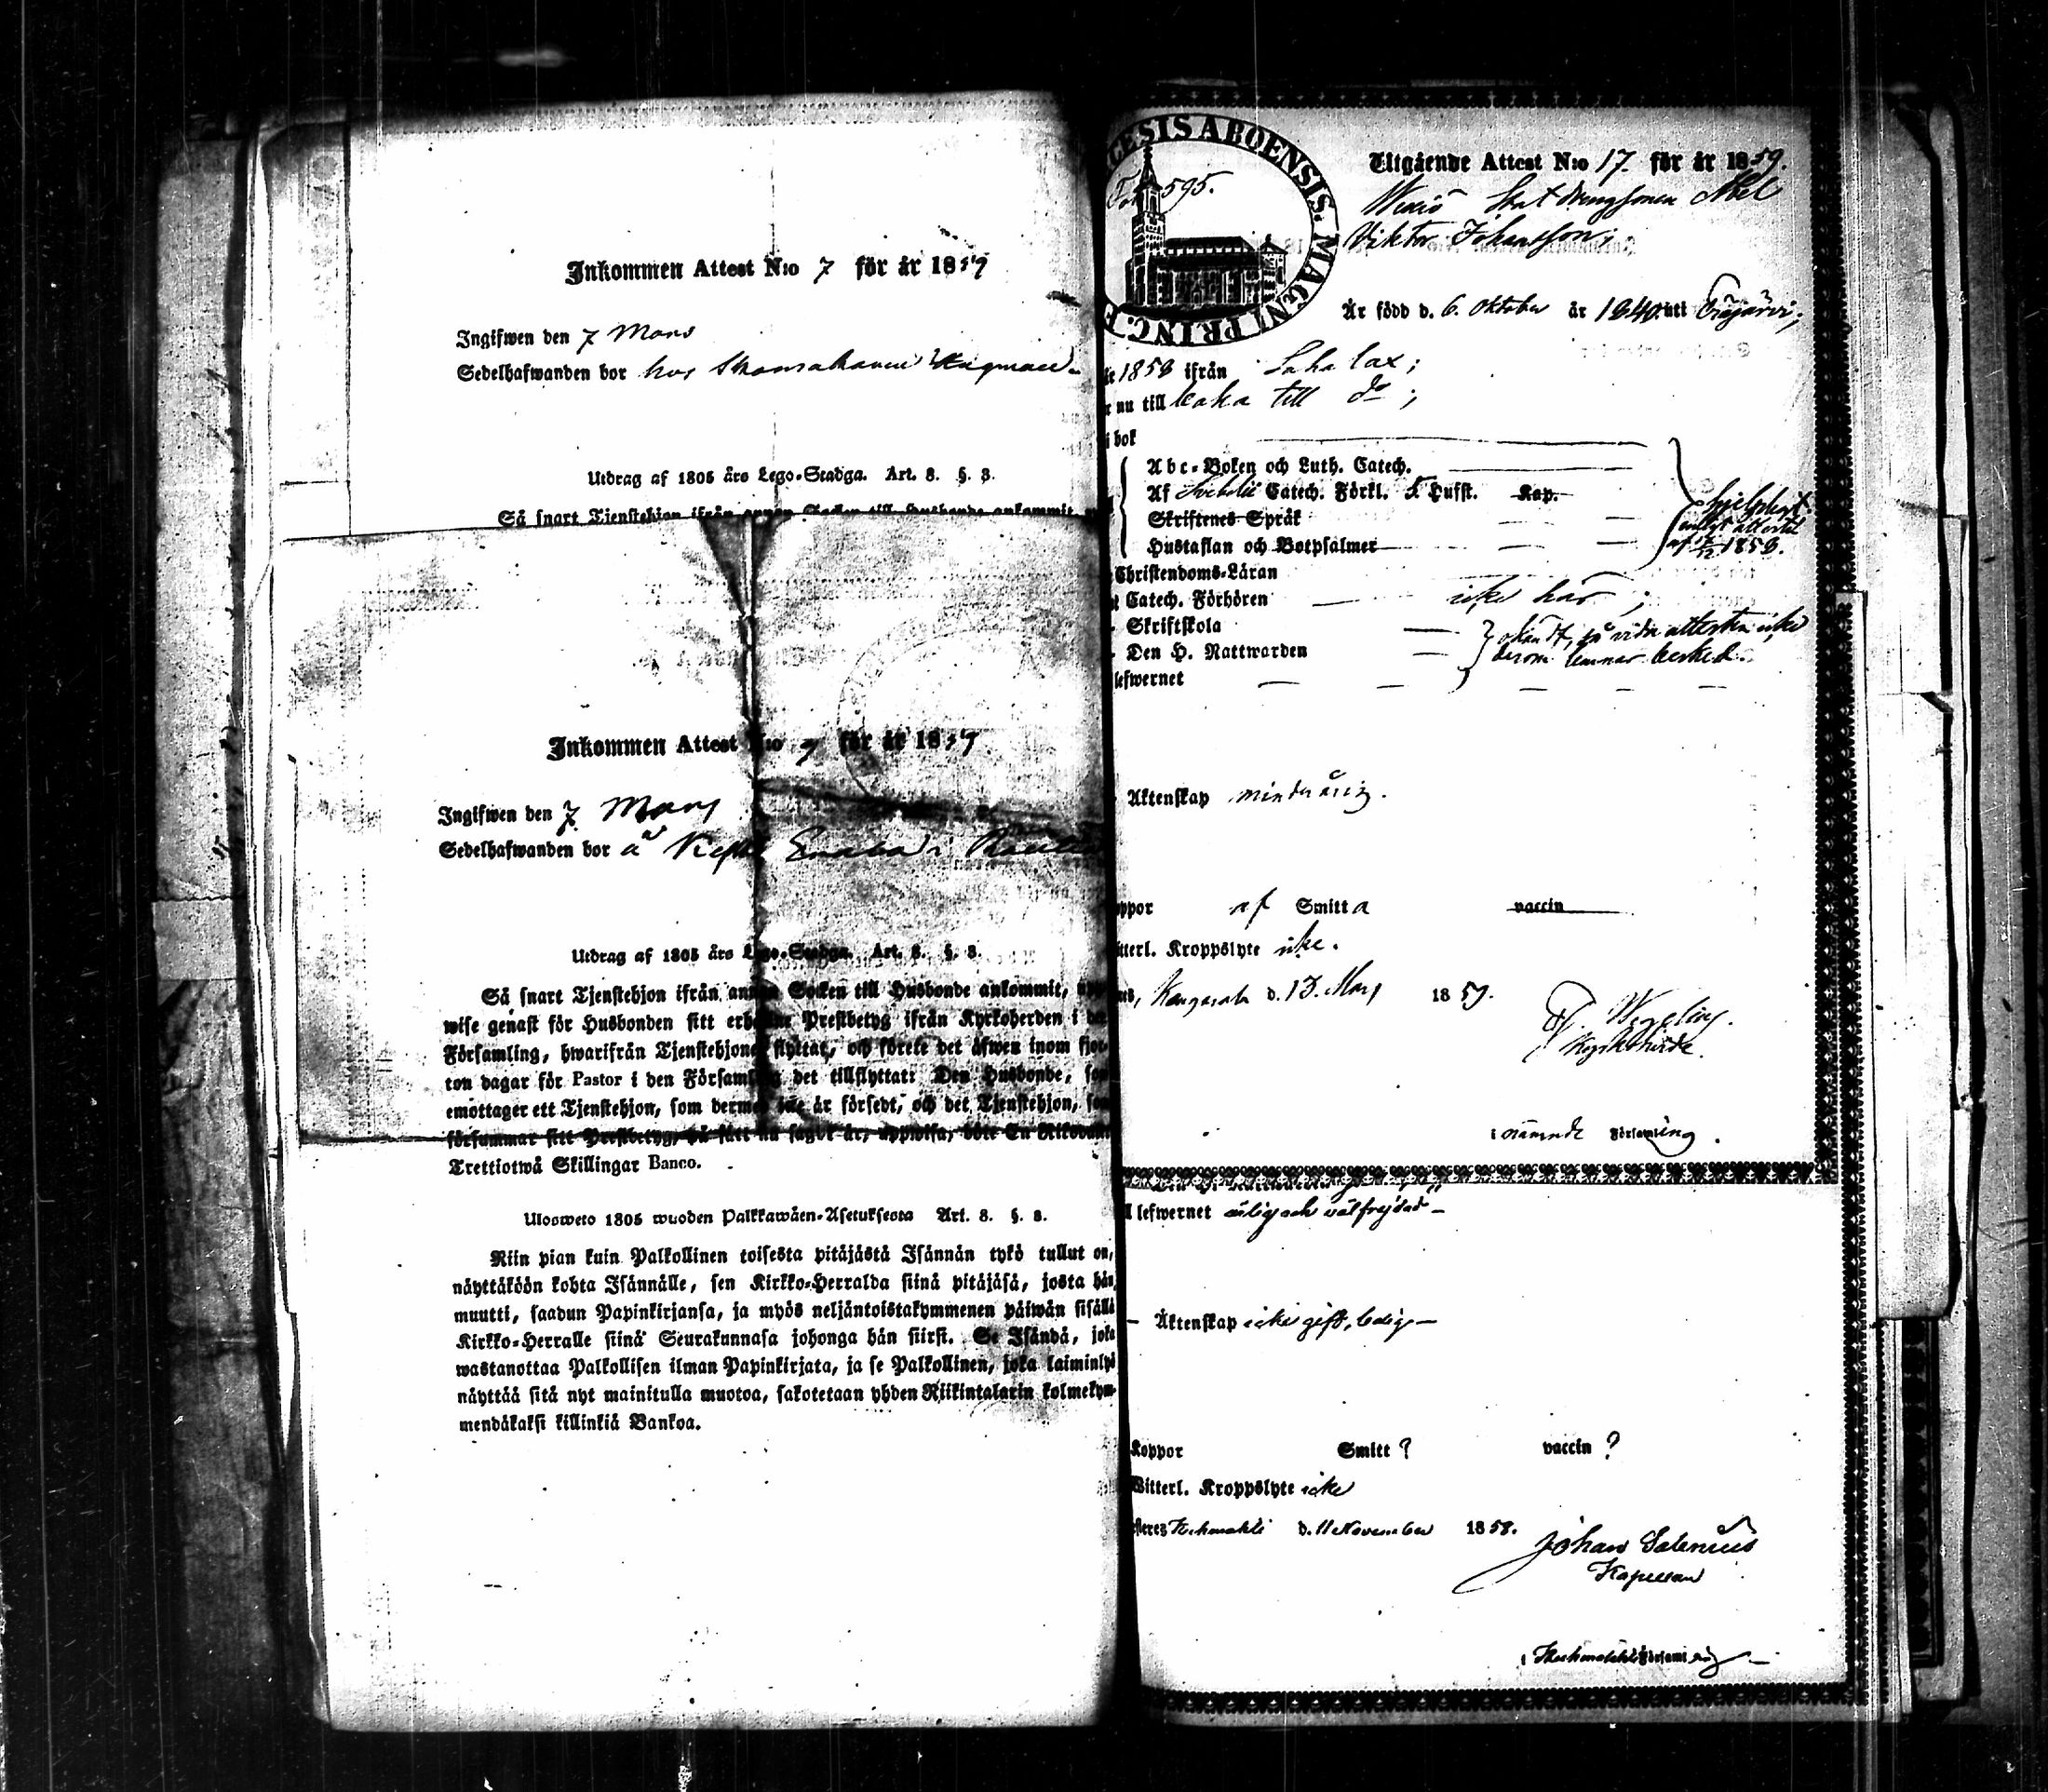 Inkommen Attest N:o 7 för år 1859
Ingifwen den 7 Mars
Sedelhafwanden bor hos
Utdrag af 1805 års Lego-Stadga. Art. 8. §. 3.
Så snart Tjenstehjon ifrån annan Socken till Husbonde ankommit
Inkommen Attest N:o 7 för år 1859
Ingifwen den 7 Mars
Sedelhafwanden bor å
Utdrag af 1805 års Lego-Stadga. Art. 8. §. 3.
Så snart Tjenstehjon ifrån annan Socken till Husbonde ankommit, upp
wise genast för Husbonden sitt erhållne Prestbetyg ifrån Kyrkoherden i den
Församling, hwarifrån Tjenstehjonet flyttat, och förete det äfwen inom fjor-
ton dagar för Pastor i den Församling det tillflyttat: Den Husbonde, som
emottager ett Tjenstehjon, som dermed icke är försedt, och det Tjenstehjon, som
försummar sitt Prestbetyg, på sätt nu sagdt är, uppwisa, böte En Riksdaler
Trettiotwå Skillingar Banco.
Ulosweto 1805 wuoden Palkkawäen-Asetuksesta Art. 8. §. 3.
Niin pian kuin Palkollinen toisesta pitäjästä Isännän tykö tullut on,
näyttäköön kohta Isännälle, sen Kirkko-Herralda siinä pitäjäsä, josta hän
muutti, saadun Papinkirjansa, ja myös neljäntoistakymmenen päiwän sisällä
Kirkko-Herralle siinä Seurakunnasa johonga hän siirsi. Se Isändä, joka
wastanottaa Palkollisen ilman Papinkirjata, ja se Palkollinen, joka laiminlyö
näyttää sitä nyt mainitulla muotoa, sakotetaan yhden Riikintalarin kolmekym-
mendäkaksi killinkiä Bankoa.
CESIS ABOENSIS. MAGNI PRINC. F
595.
Utgående Attest N:o 17. för år 1859.
Viktor Johansson;
Är född d. 6. Oktober år 1840 uti
1858 ifrån Sahalax;
nu till baka till do;
i bok
Abc-Boken och Luth. Catech.
Af Svebelii Catech. Förkl. 5 Hufst. Kap.
Skriftenes Språk
Hustaflan och Botpsalmer
hjelpligt
enligt attesten
af 1858.
Christendoms-Läran
Catech. Förhören icke här;
Skriftskola
Den H. Nattwarden
okändt, så vida attesten icke
derom lemnar besked.
lefwernet
Äktenskap minderårig.
oppor af Smitta vaccin
itterl. Kroppslyte icke.
Kangasala d. 13. Mars 1859.
Kyrkoherde.
i nämnde Församling.
lefwernet ärlig och välfrejdad
Äktenskap icke gift, ledig
Koppor Smitt? vaccin?
Witterl. Kroppslyte icke
d. 11 November 1858.
Johan Salenius
Kapellan
Församling